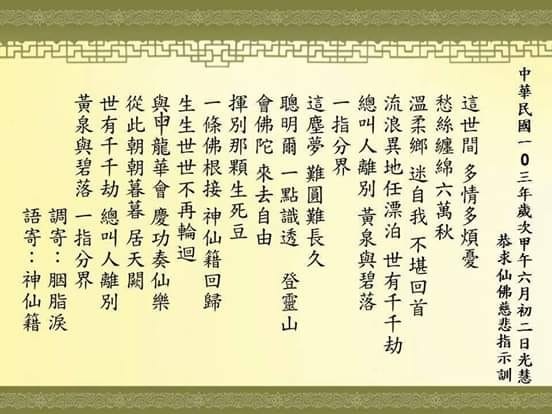 中華民國一0三年歲次甲午六月初二日光慧
恭求仙佛慈悲指示訓
這世間 多情多煩憂
愁絲纏綿六萬秋
溫柔鄉 迷自我 不堪回首
流浪異地任漂泊 世有千千劫
總叫人離別 黃泉與碧落
一指分界
這塵夢 難圓難長久
聰明爾 一點識透 登靈山
會佛陀 來去自由
揮別那顆生死豆
一條佛根接 神仙籍回歸
生生世世不再輪迴
與申龍華會 慶功奏仙樂
從此朝朝暮暮 居天闕
世有千千劫 總叫人離別
黃泉與碧落 一指分界
調寄：胭脂淚
語寄：神仙籍